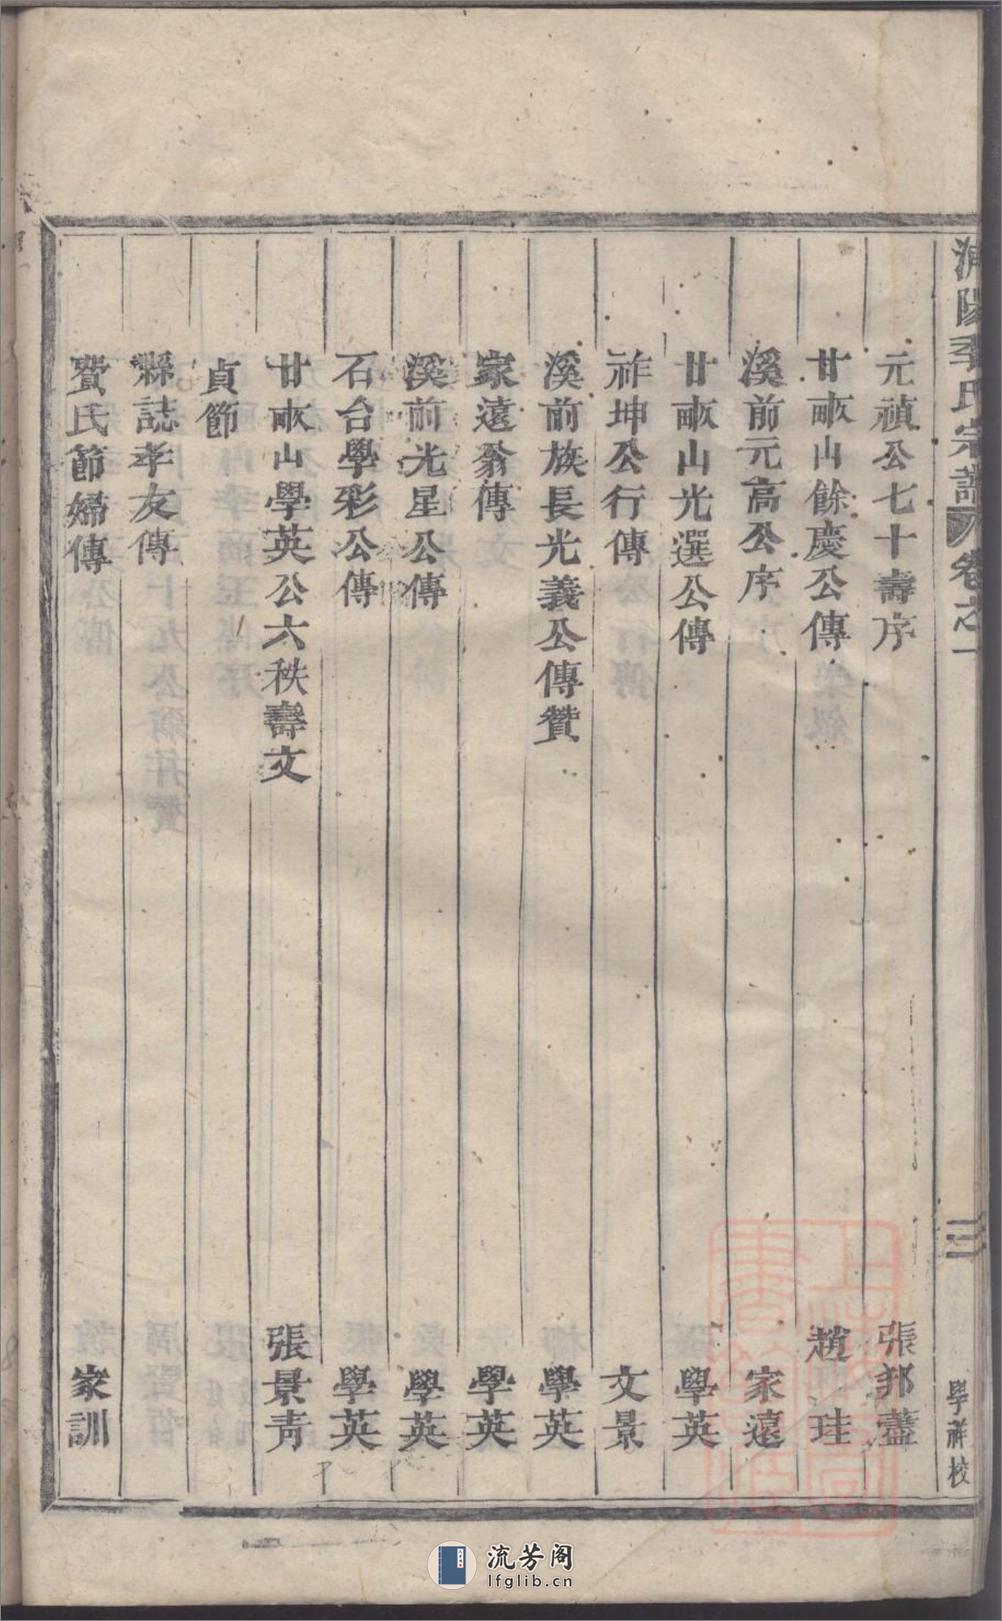 濟陽李氏宗譜 卷之一 三 學祥校
元禎公七十壽序 張邦藎
廿畝山餘慶公傳 趙珪
溪前元高公序 家遠
廿畝山光選公傳 學英
祚坤公行傳 文景
溪前族長光義公傳贊 學英
家遠翁傳 學英
溪前光星公傳 學英
石台學彩公傳 學英
廿畝山學英公六秩壽文 張景青
貞節
縣誌孝友傳
費氏節婦傳 家訓
流芳阁
lfglib.cn